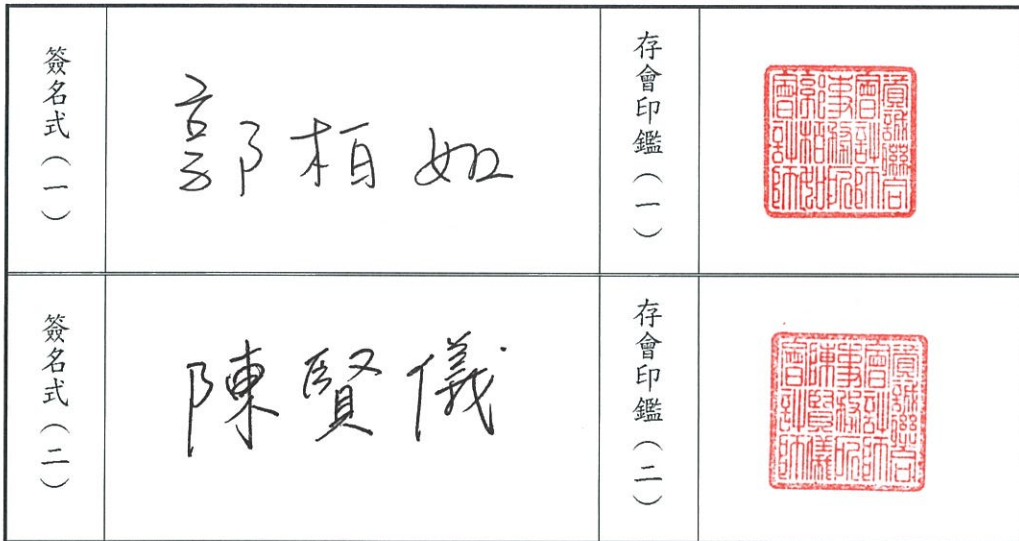 簽名式（一）
郭柏如
存會印鑑（一）
資誠聯合
會計師
事務所
郭柏如
會計師
簽名式（二）
陳賢儀
存會印鑑（二）
資誠聯合
會計師
事務所
陳賢儀
會計師